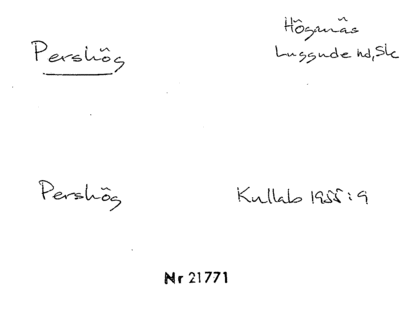 Pershög
Höganäs
Luggude hd, Sk
Pershög
Kullab 1955:9
Nr 21771